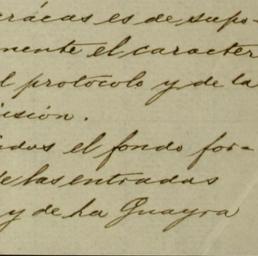 crácas es de supo-
mente el caracter
l protocolo y de la
isión.
idas el fondo for-
e las entradas
y de La Guayra